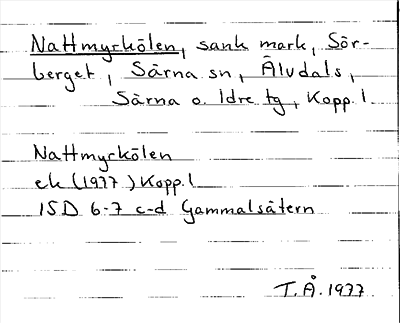 Nattmyrkölen, sank mark, Sör-
berget, Särna sn, Älvdals,
Särna o. Idre tg, Kopp. l.
Nattmyrkölen
ek (1977) Kopp. l
15D 6-7 c-d Gammalsätern
T. Å. 1977